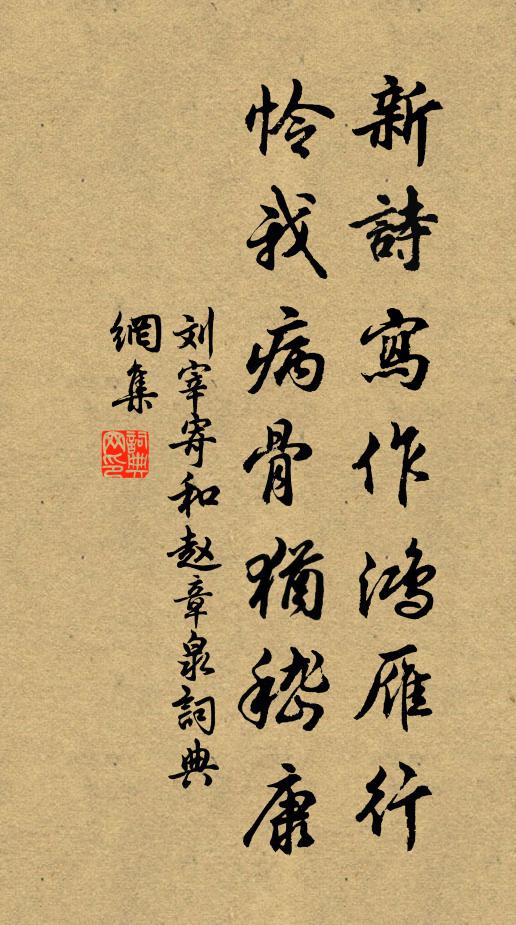 新詩寫作鴻雁行
怜我病骨猶嵇康
刘宰寄和赵章泉詞典
網集
詞典
网印